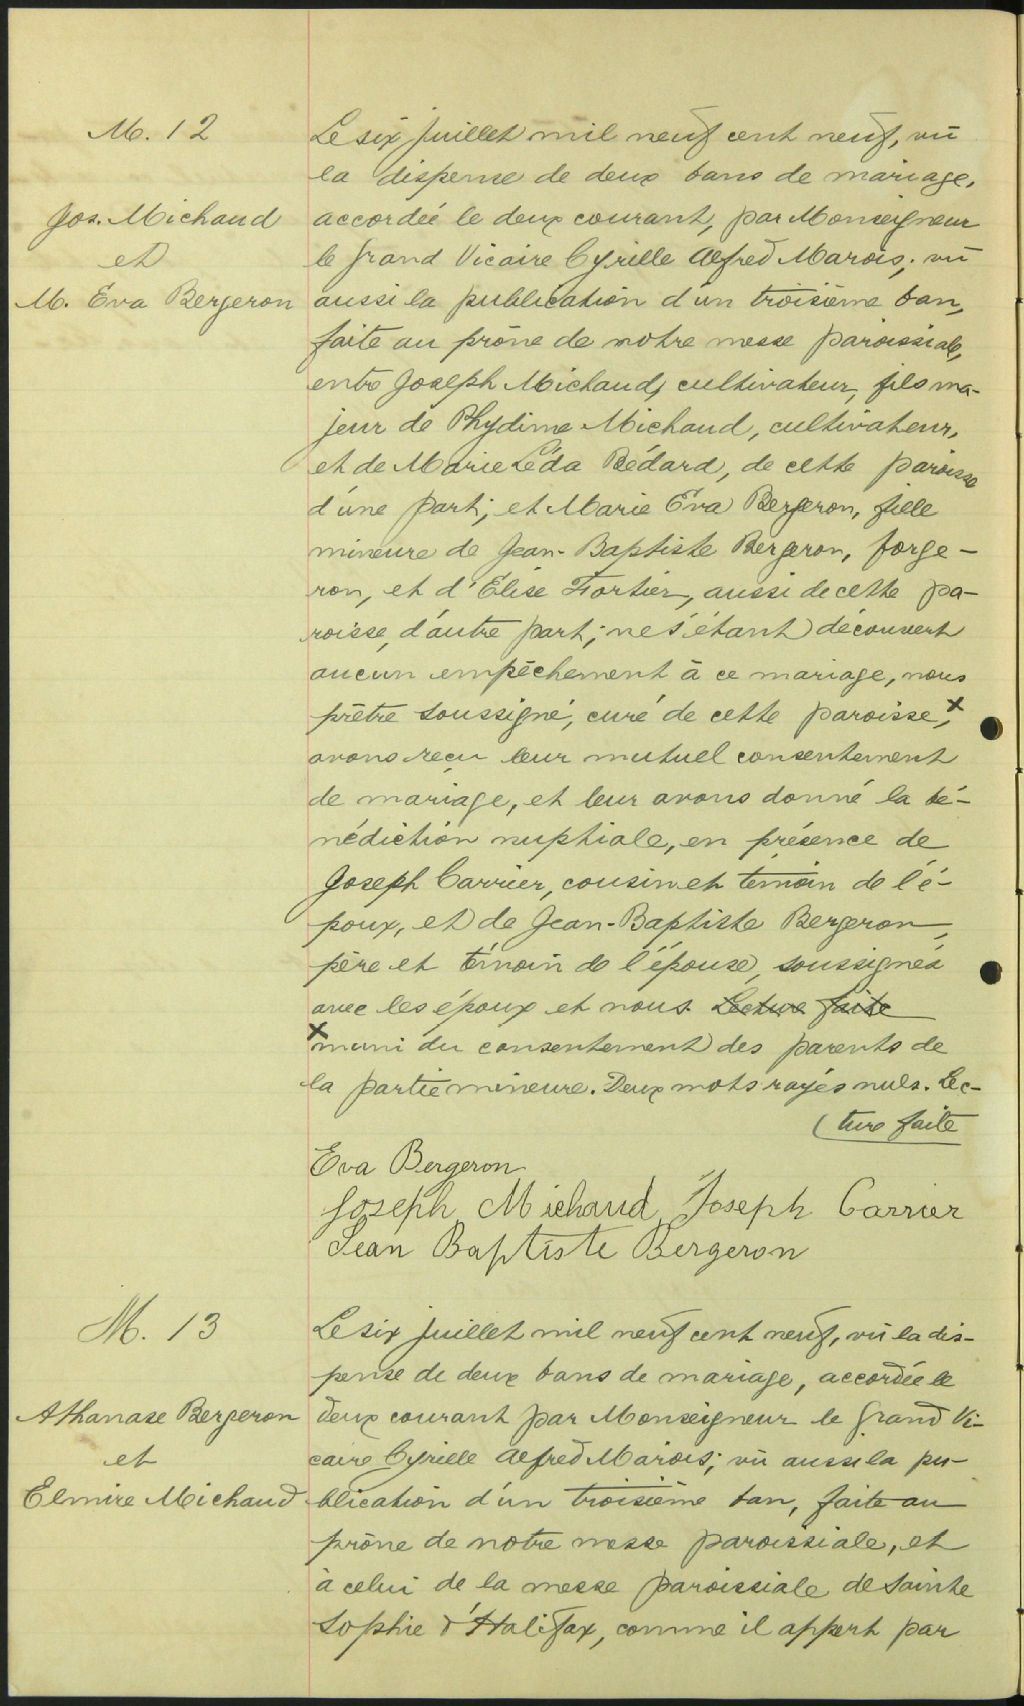 M. 12
Jos. Michaud
et
M. Éva Bergeron
Le six juillet mil neuf cent neuf, vû
la dispense de deux bans de mariage,
accordée le deux courant, par Monseigneur
le grand Vicaire Cyrille Alfred Marois; vû
aussi la publication d'un troisième ban,
faite au prône de notre messe paroissiale,
entre Joseph Michaud, cultivateur, fils ma-
jeur de Phydime Michaud, cultivateur,
et de Marie Léda Bédard, de cette paroisse
d'une part; et Marie Éva Bergeron, fille
mineure de Jean-Baptiste Bergeron, forge-
ron, et d'Élise Fortier, aussi de cette pa-
roisse, d'autre part; ne s'étant découvert
aucun empêchement à ce mariage, nous
prêtre soussigné, curé de cette paroisse, x
avons reçu leur mutuel consentement
de mariage, et leur avons donné la bé-
nédiction nuptiale, en présence de
Joseph Carrier, cousin et témoin de l'é-
poux, et de Jean-Baptiste Bergeron,
père et témoin de l'épouse, soussignés
avec les époux et nous. Lecture faite
x muni du consentement des parents de
la partie mineure. Deux mots rayés nuls. Lec-
(ture faite
Eva Bergeron
Joseph Michaud Joseph Carrier
Jean Baptiste Bergeron
M. 13
Athanase Bergeron
et
Elmire Michaud
Le six juillet mil neuf cent neuf, vû la dis-
pense de deux bans de mariage, accordée le
deux courant par Monseigneur le grand Vi-
caire Cyrille Alfred Marois; vû aussi la pu-
blication d'un troisième ban, faite au
prône de notre messe paroissiale, et
à celui de la messe paroissiale de Sainte
Sophie d'Halifax, comme il appert par